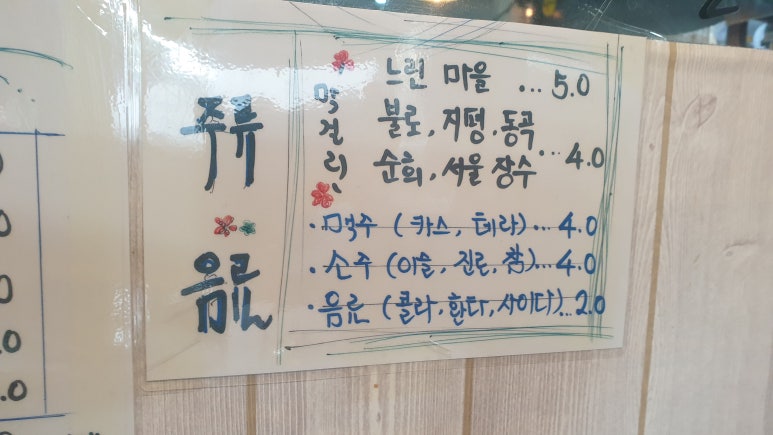 주류
음료
막걸리
느린 마을 ... 5.0
불로, 지평, 동곡
순희, 서울 장수 ... 4.0
· 맥주 (카스, 테라)... 4.0
· 소주 (이슬, 진로, 참)... 4.0
· 음료 (콜라, 환타, 사이다)... 2.0